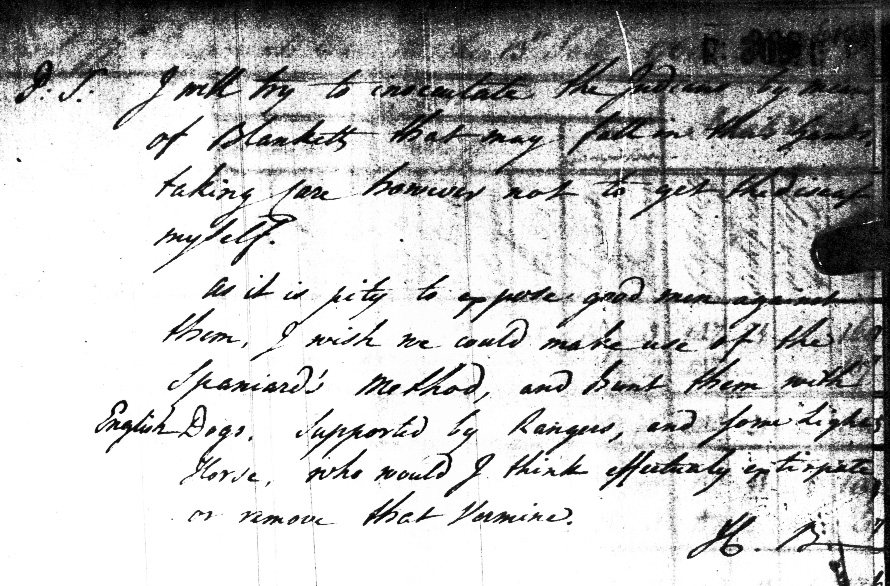 P. S. I will try to inocculate the Indians by means
of Blankets that may fall in their hands,
taking care however not to get the disease
myself.
As it is pity to oppose good men against
them, I wish we could make use of the
Spaniard's Method, and hunt them with
English Dogs. Supported by Rangers, and some Light
Horse, who would I think effectualy extirpate
or remove that Vermine.
H. B.